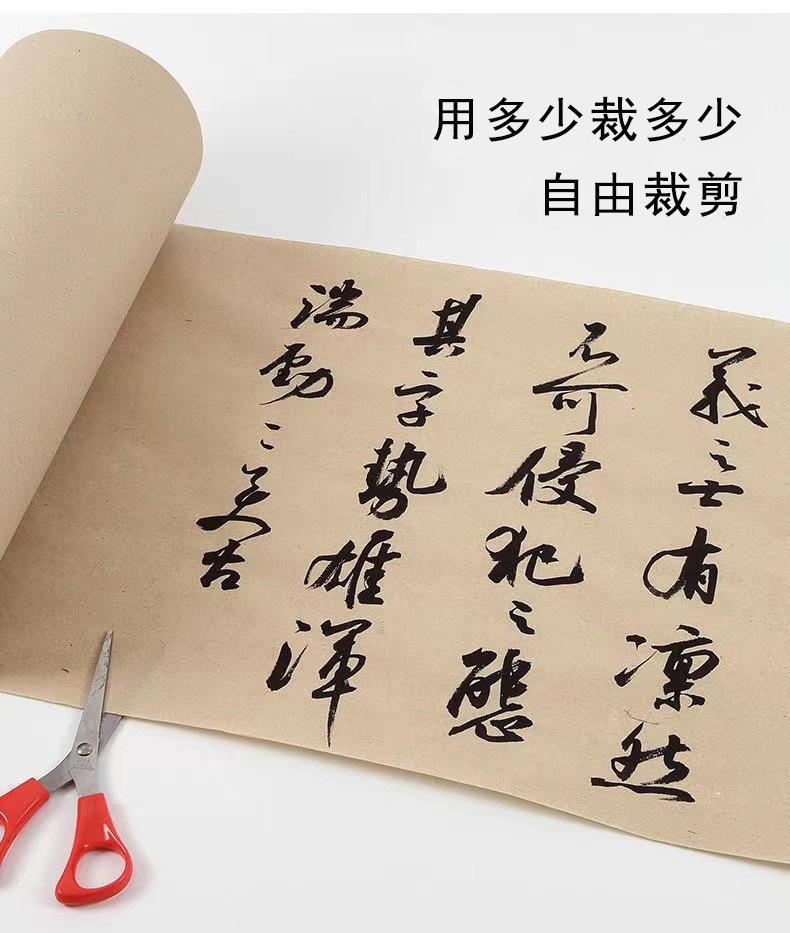 用多少裁多少
自由裁剪
義之士有凛然
不可侵犯之態
其字勢雄渾
湍動